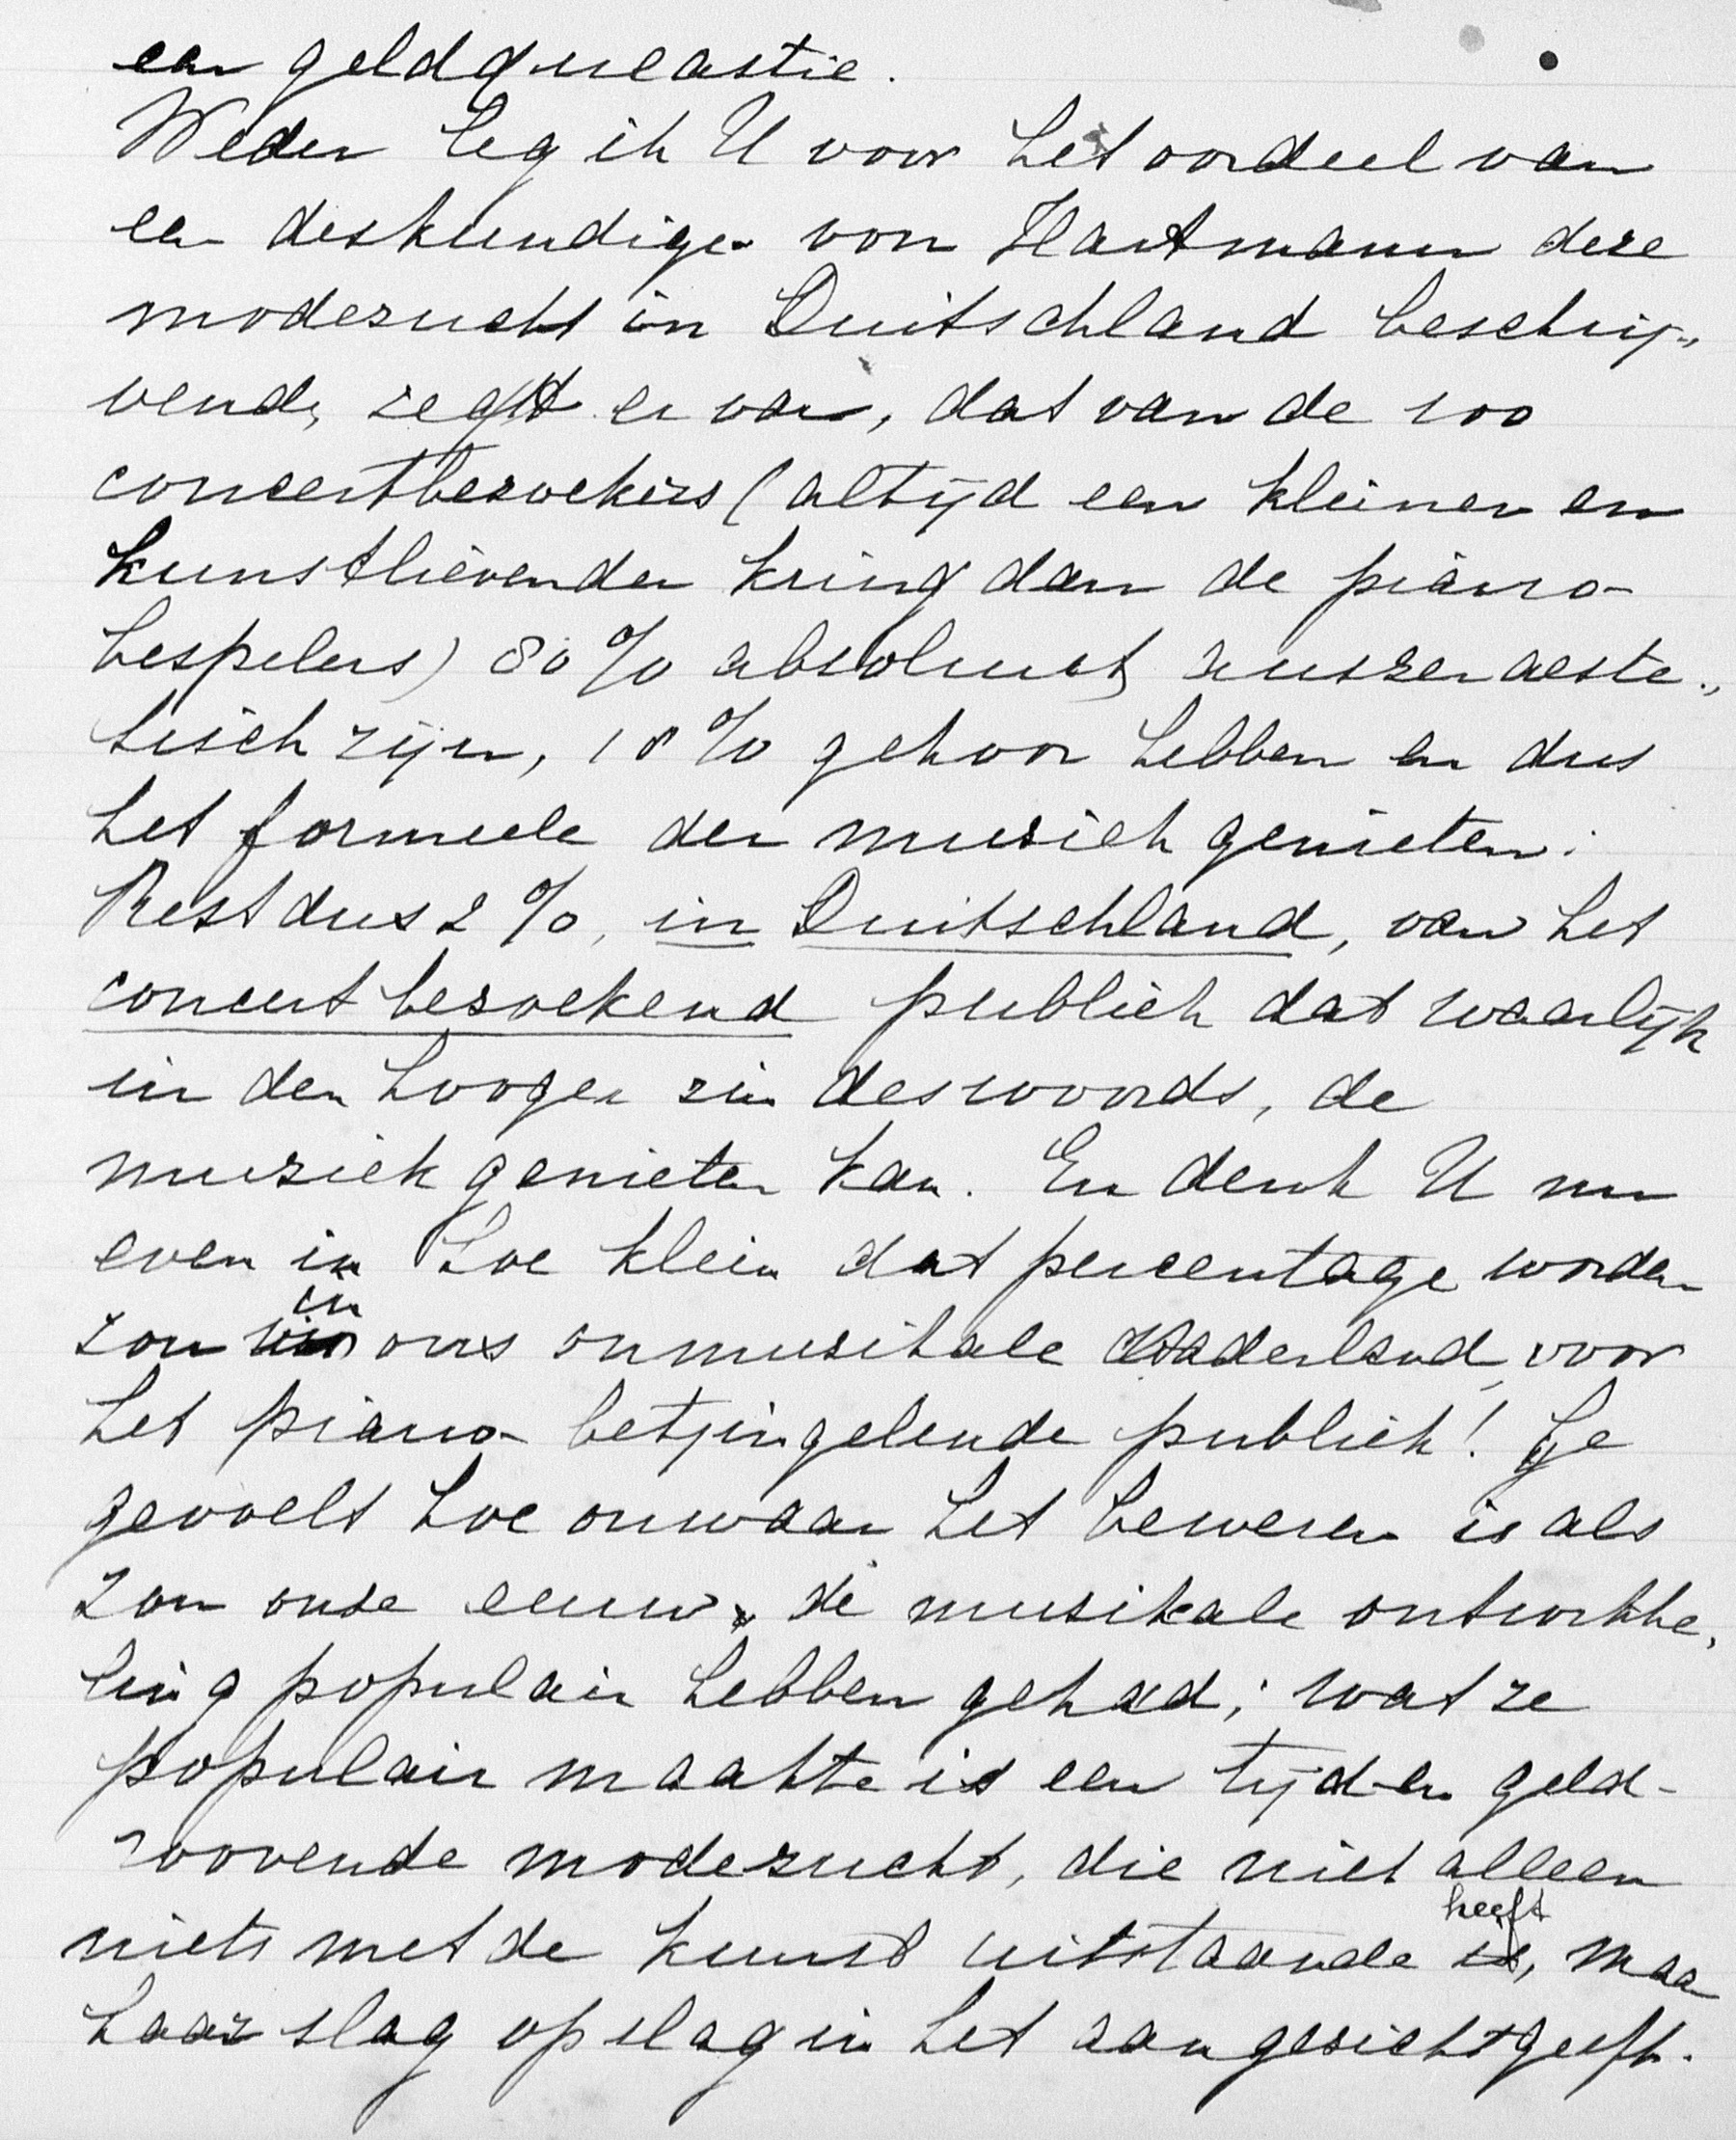 een geldqueastie.
Weder leg ik U voor het oordeel van
een deskundige von Hartmann deze
modezucht in Duitschland beschrij„
vend, zegt er van, dat van de 100
concertbezoekers (altijd een kleiner en
kunstlievender kring dan de piano-
bespelers) 80% absoluut auszeraeste„
tisch zijn, 18% gehoor hebben en dus
het formeele der musiek genieten.
Rest dus 2%, in Duitschland, van het
concert bezoekend publiek dat waarlijk
in den hoogen zin des woords, de
muziek genieten kan. En denk U nu
even in hoe klein dat percentage worden
zou in ons onmusikale Vaderland, voor
het piano- betjingelende publiek! Ge
gevoelt hoe onwaar het beweren is als
zou onze eeuw de musikale ontwikke„
ling populair hebben gehad; wat ze
populair maakte is een tijd-en geld-
roovende modezucht, die niet alleen
niets met de kunst uitstaande heeft, maar
haar slag op slag in het aangezicht geeft.